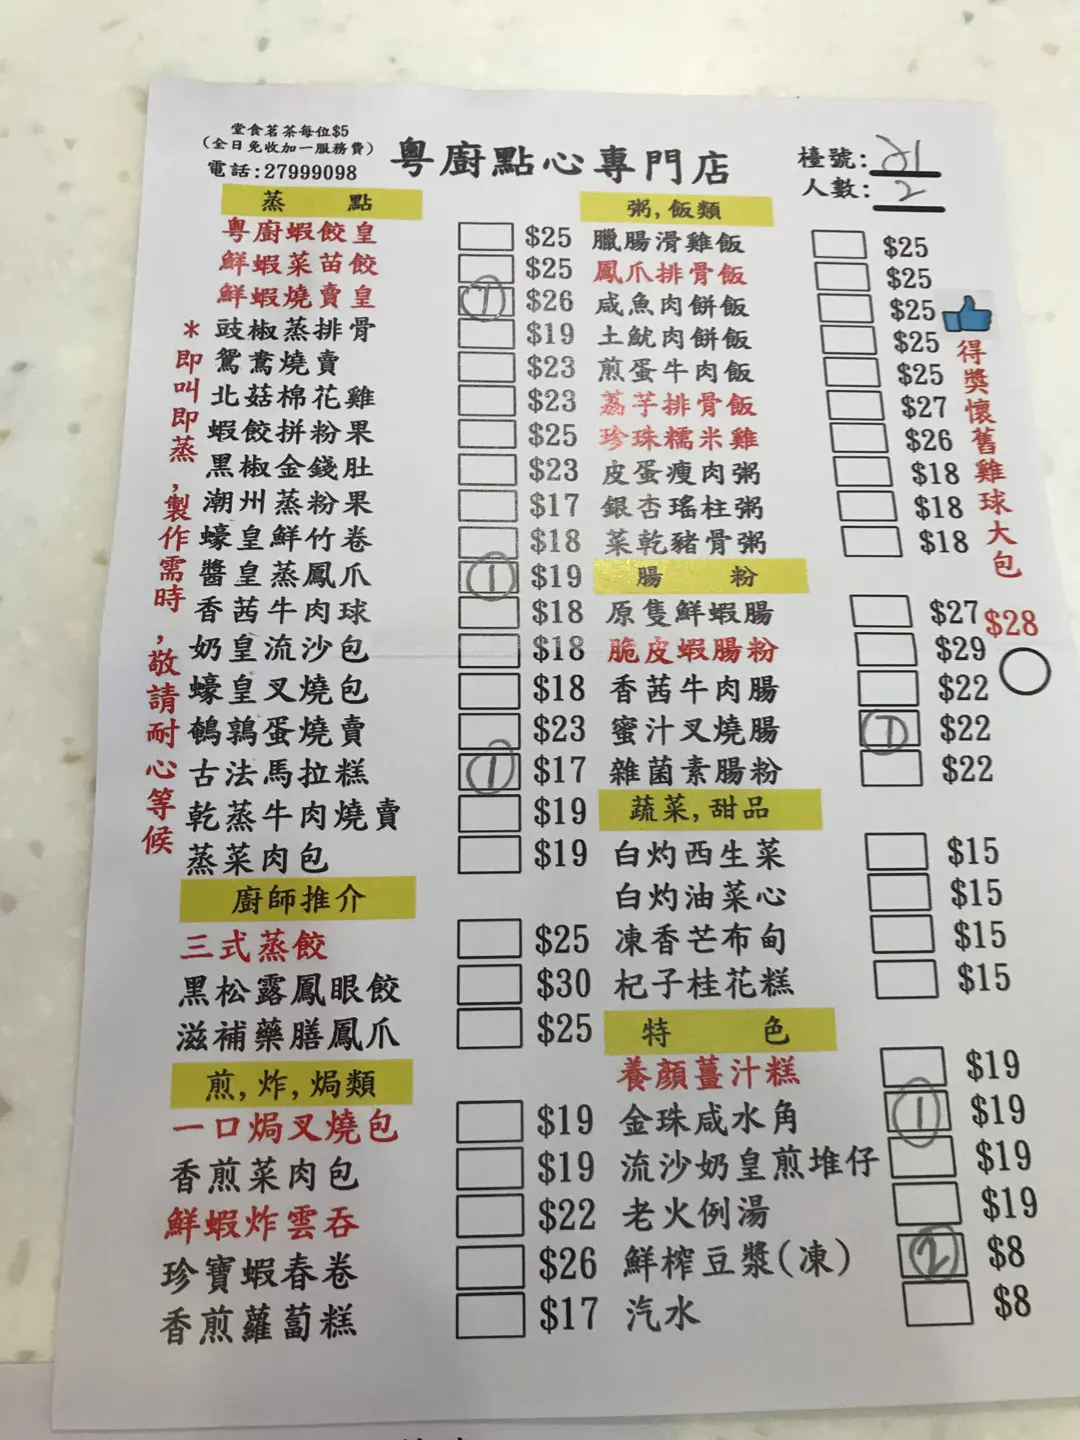 堂食茗茶每位$5
(全日免收加一服務費)
電話:27999098
粵廚點心專門店
檯號: 21
人數: 2
蒸 點
粵廚蝦餃皇 $25
鮮蝦菜苗餃 $25
鮮蝦燒賣皇 1 $26
豉椒蒸排骨 $19
鴛鴦燒賣 $23
北菇棉花雞 $23
蝦餃拼粉果 $25
黑椒金錢肚 $23
潮州蒸粉果 $17
蠔皇鮮竹卷 $18
醬皇蒸鳳爪 1 $19
香茜牛肉球 $18
奶皇流沙包 $18
蠔皇叉燒包 $18
鵪鶉蛋燒賣 $23
古法馬拉糕 1 $17
乾蒸牛肉燒賣 $19
蒸菜肉包 $19
*即叫即蒸,製作需時,敬請耐心等候
廚師推介
三式蒸餃 $25
黑松露鳳眼餃 $30
滋補藥膳鳳爪 $25
煎,炸,焗類
一口焗叉燒包 $19
香煎菜肉包 $19
鮮蝦炸雲吞 $22
珍寶蝦春卷 $26
香煎蘿蔔糕 $17
粥,飯類
臘腸滑雞飯 $25
鳳爪排骨飯 $25
咸魚肉餅飯 $25
土魷肉餅飯 $25
煎蛋牛肉飯 $25
荔芋排骨飯 $27
珍珠糯米雞 $26
皮蛋瘦肉粥 $18
銀杏瑤柱粥 $18
菜乾豬骨粥 $18
腸 粉
原隻鮮蝦腸 $27
脆皮蝦腸粉 $29
香茜牛肉腸 $22
蜜汁叉燒腸 1 $22
雜菌素腸粉 $22
蔬菜,甜品
白灼西生菜 $15
白灼油菜心 $15
凍香芒布甸 $15
杞子桂花糕 $15
特 色
養顏薑汁糕 $19
金珠咸水角 1 $19
流沙奶皇煎堆仔 $19
老火例湯 $19
鮮榨豆漿(凍) 2 $8
汽水 $8
得獎懷舊雞球大包
$28